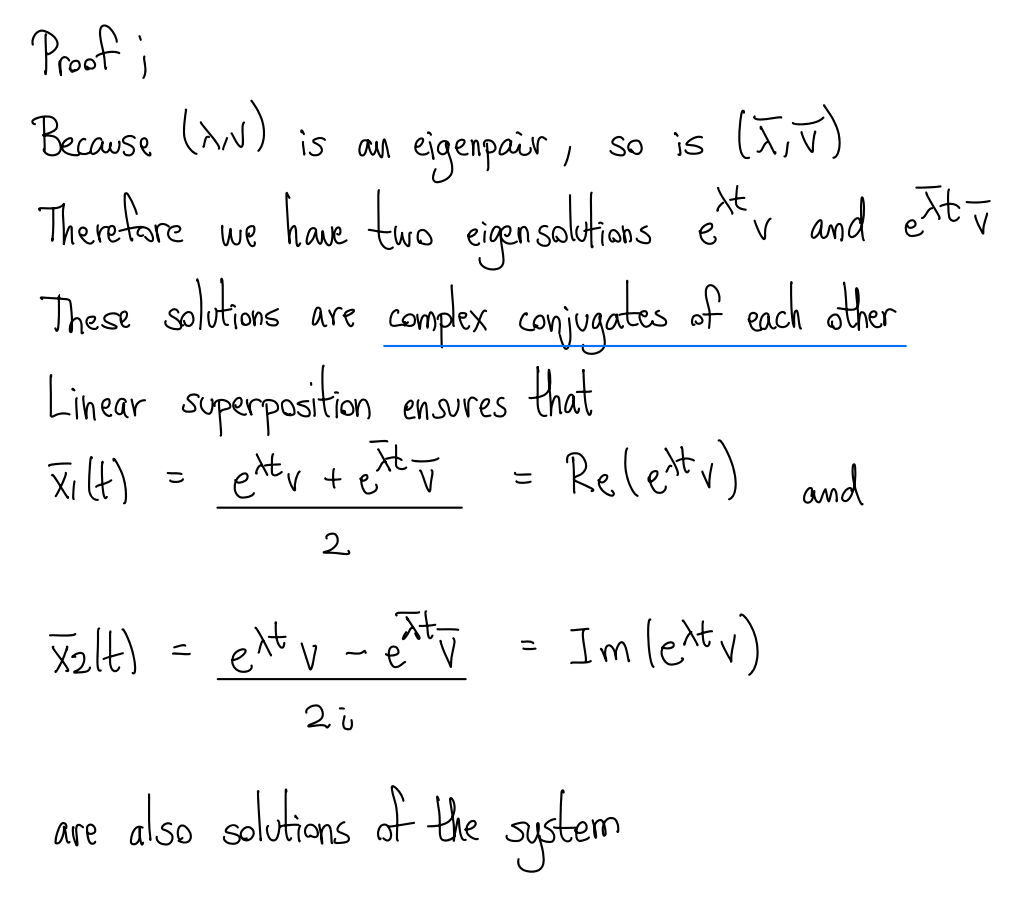 Proof ;
Because (λ,v) is an eigenpair, so is (λ̅, v̅)
Therefore we have two eigensolutions e^{λt} v and e^{λ̅t} v̅
These solutions are complex conjugates of each other
Linear superposition ensures that
x̅₁(t) = (e^{λt} v + e^{λ̅t} v̅) / 2 = Re(e^{λt} v) and
x̅₂(t) = (e^{λt} v − e^{λ̅t} v̅) / 2i = Im(e^{λt} v)
are also solutions of the system